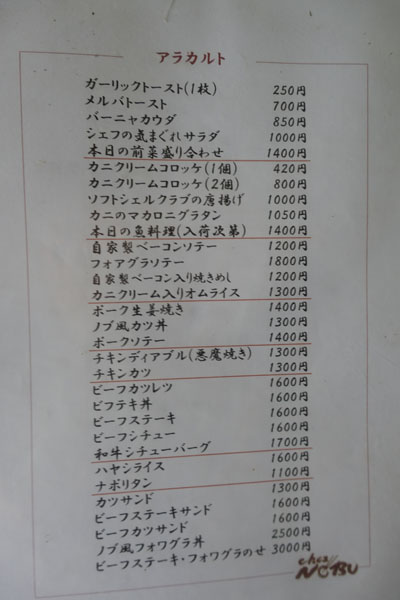 アラカルト
ガーリックトースト(1枚) 250円
メルバトースト 700円
バーニャカウダ 850円
シェフの気まぐれサラダ 1000円
本日の前菜盛り合わせ 1400円
カニクリームコロッケ(1個) 420円
カニクリームコロッケ(2個) 800円
ソフトシェルクラブの唐揚げ 1000円
カニのマカロニグラタン 1050円
本日の魚料理(入荷次第) 1400円
自家製ベーコンソテー 1200円
フォアグラソテー 1800円
自家製ベーコン入り焼きめし 1200円
カニクリーム入りオムライス 1300円
ポーク生姜焼き 1400円
ノブ風カツ丼 1300円
ポークソテー 1400円
チキンディアブル(悪魔焼き) 1300円
チキンカツ 1300円
ビーフカツレツ 1600円
ビフテキ丼 1600円
ビーフステーキ 1600円
ビーフシチュー 1600円
和牛シチューバーグ 1700円
ハヤシライス 1600円
ナポリタン 1100円
カツサンド 1300円
ビーフステーキサンド 1600円
ビーフカツサンド 1600円
ノブ風フォワグラ丼 2500円
ビーフステーキ・フォワグラのせ 3000円
chez
NOBU